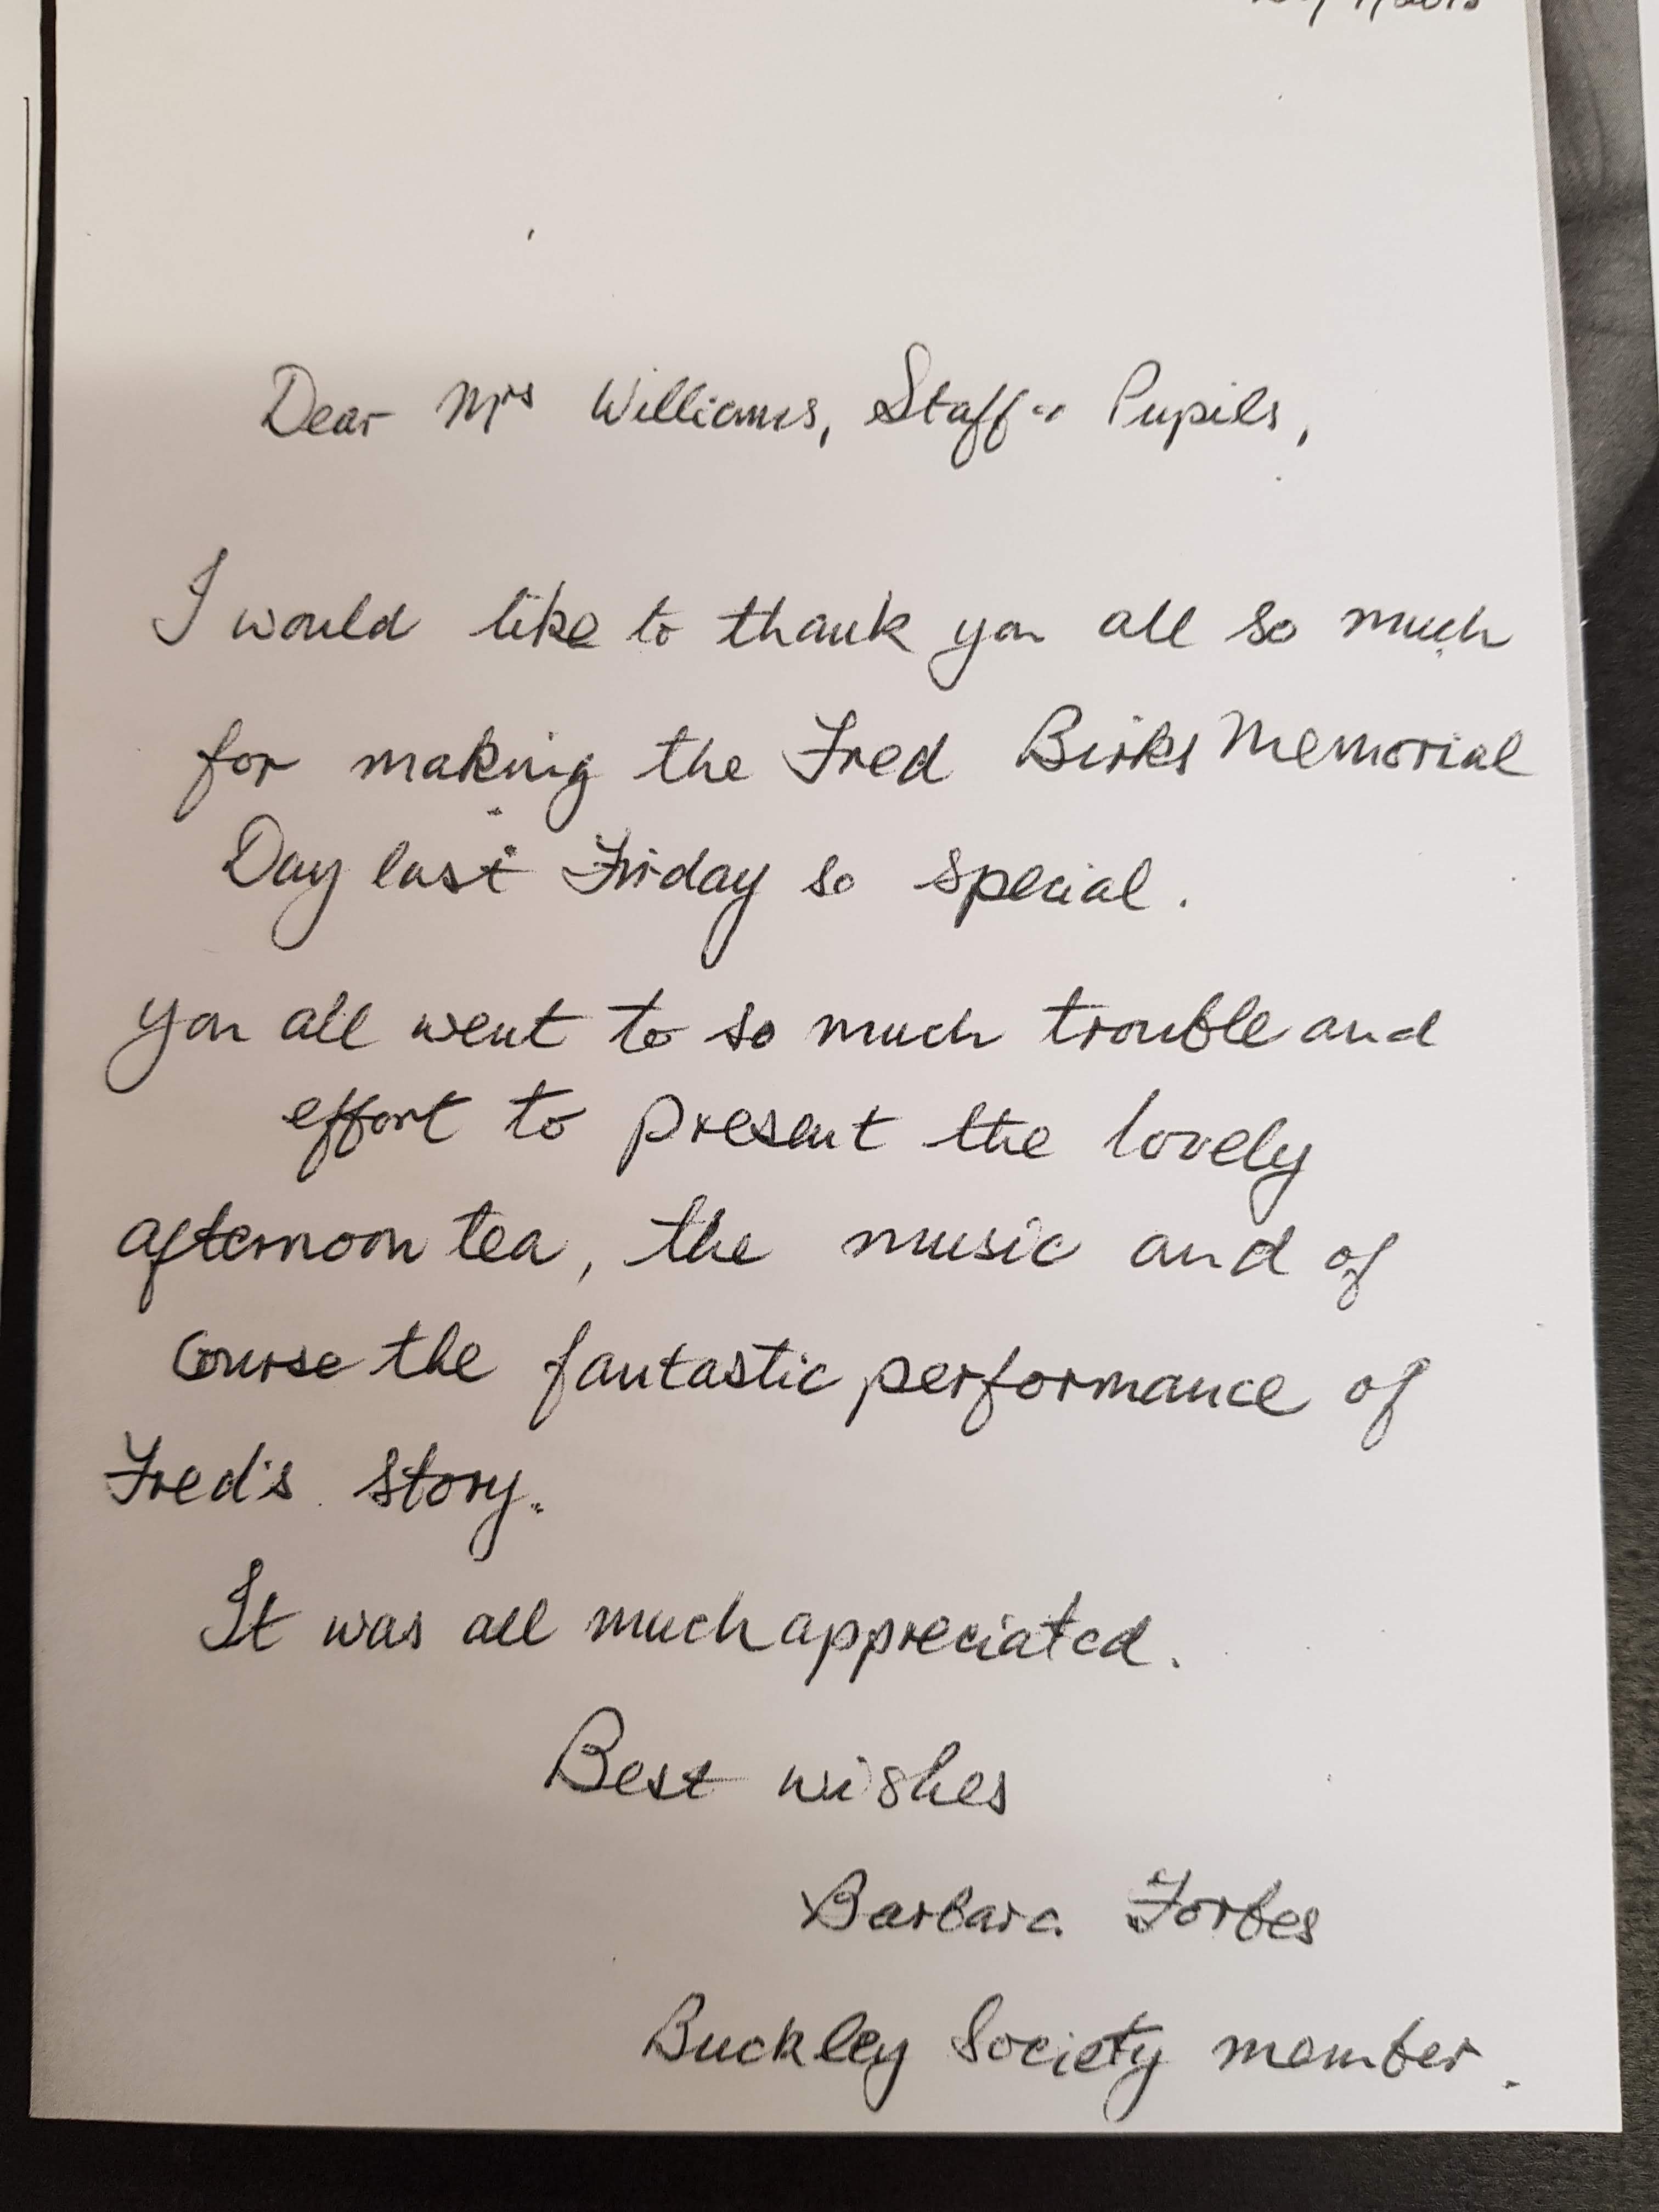 Dear Mrs Williams, Staff & Pupils,
I would like to thank you all so much
for making the Fred Birks Memorial
Day last Friday so special.
You all went to so much trouble and
effort to present the lovely
afternoon tea, the music and of
course the fantastic performance of
Fred's story.
It was all much appreciated.
Best wishes
Barbara Forbes
Buckley Society member.